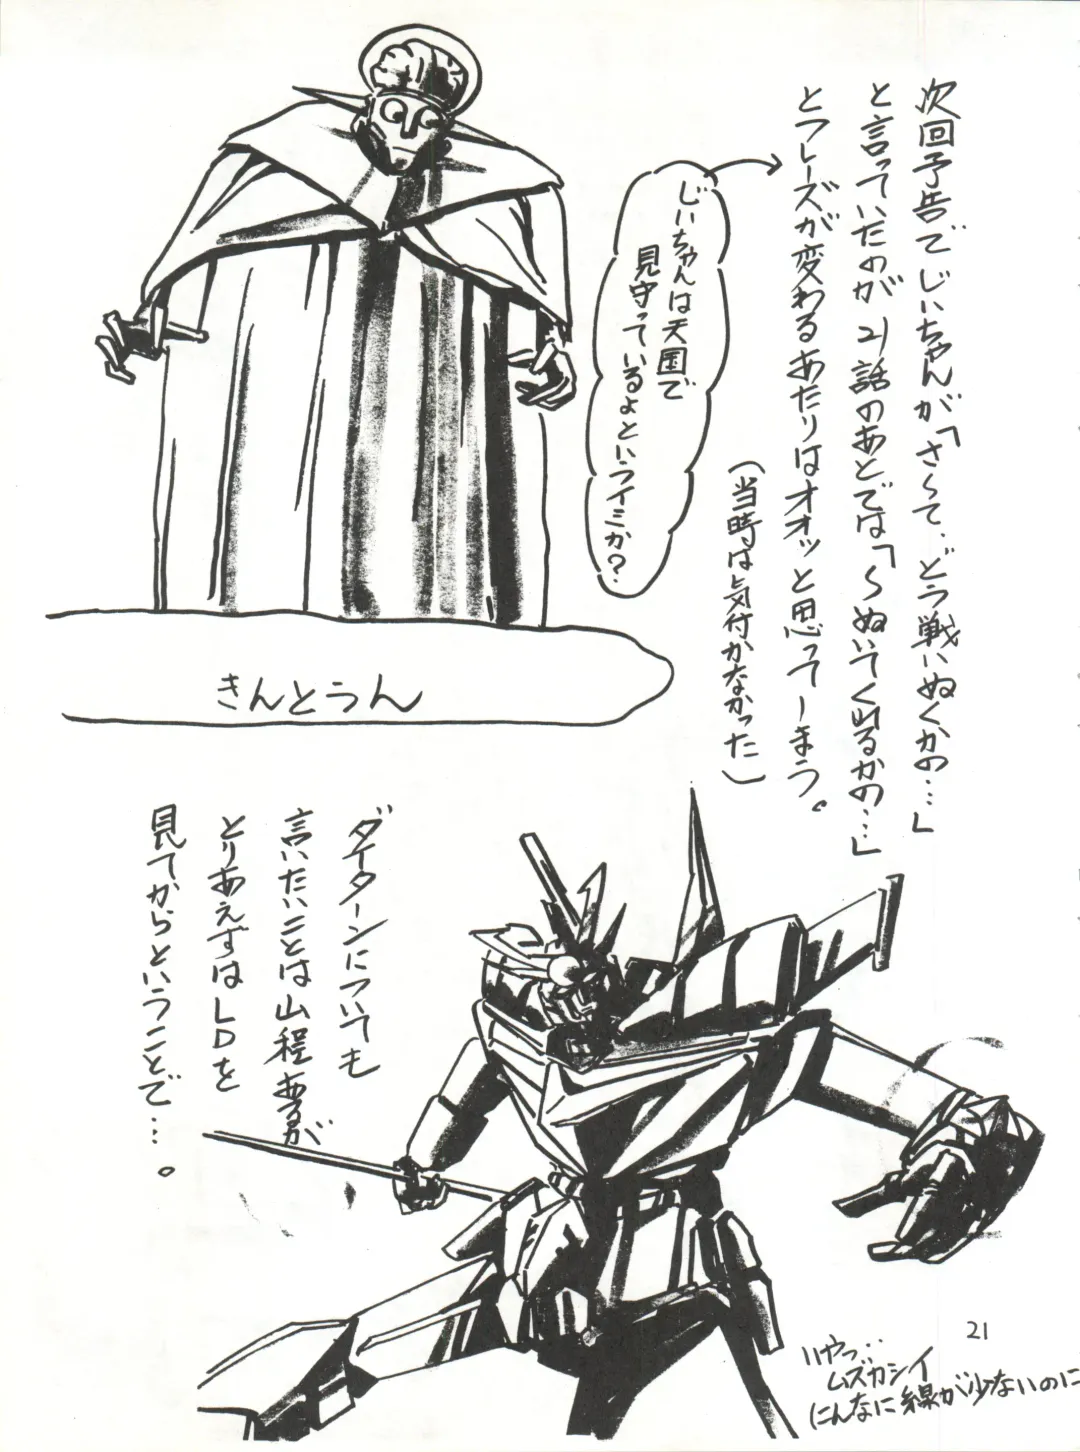 次回予告でじいちゃんが「さぁて、どう戦いぬくかの…」
と言っていたのが21話のあとでは「〜ぬいてくれるかの…」
とフレーズが変わるあたりはオオッと思ってしまう。
(当時は気付かなかった)
じいちゃんは天国で
見守っているよというイミか?
きんとうん
ダイターンについても
言いたいことは山程あるが
とりあえずはLDを
見てからということで…。
いやっ…
ムズカシイ
こんなに線が少ないのに
21